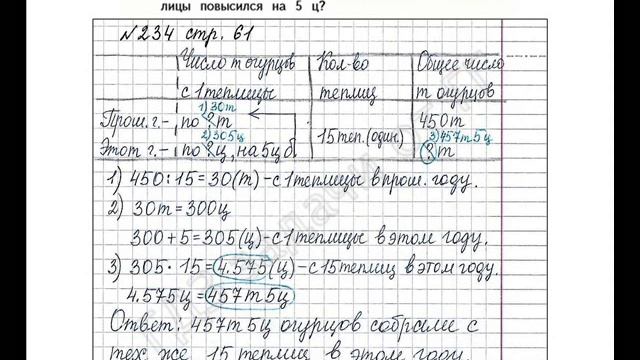 лицы повысился на 5 ц?
№234 стр. 61
Число т огурцов Кол-во Общее число
с 1 теплицы теплиц т огурцов
1) 30т
Прош. г. - по ? т 450т
2) 305ц 15 теп. (один.) 3) 457т 5ц
Этот г. - по ? ц, на 5ц б. ? т
1) 450 : 15 = 30 (т) - с 1 теплицы в прош. году.
2) 30т = 300ц
300 + 5 = 305 (ц) - с 1 теплицы в этом году.
3) 305 · 15 = 4.575 (ц) - с 15 теплиц в этом году.
4.575ц = 457т 5ц
Ответ: 457т 5ц огурцов собрали с
тех же 15 теплиц в этом году.